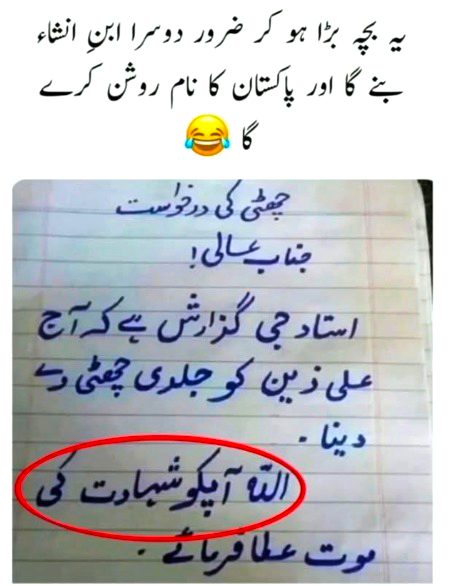 یہ بچہ بڑا ہو کر ضرور دوسرا ابنِ انشاء
بنے گا اور پاکستان کا نام روشن کرے
گا 😂
چھٹی کی درخواست
جناب عالی!
استاد جی گزارش ہے کہ آج
علی زین کو جلدی چھٹی دے
دینا ۔
اللہ آپکو شہادت کی
موت عطا فرمائے ۔